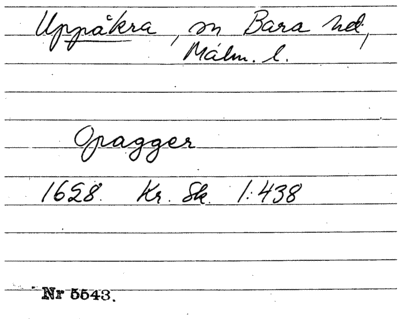 Uppåkra, sn Bara hd,
Malm. l.
Opagger
1628. Kr. Sk. 1:438
Nr 5543.